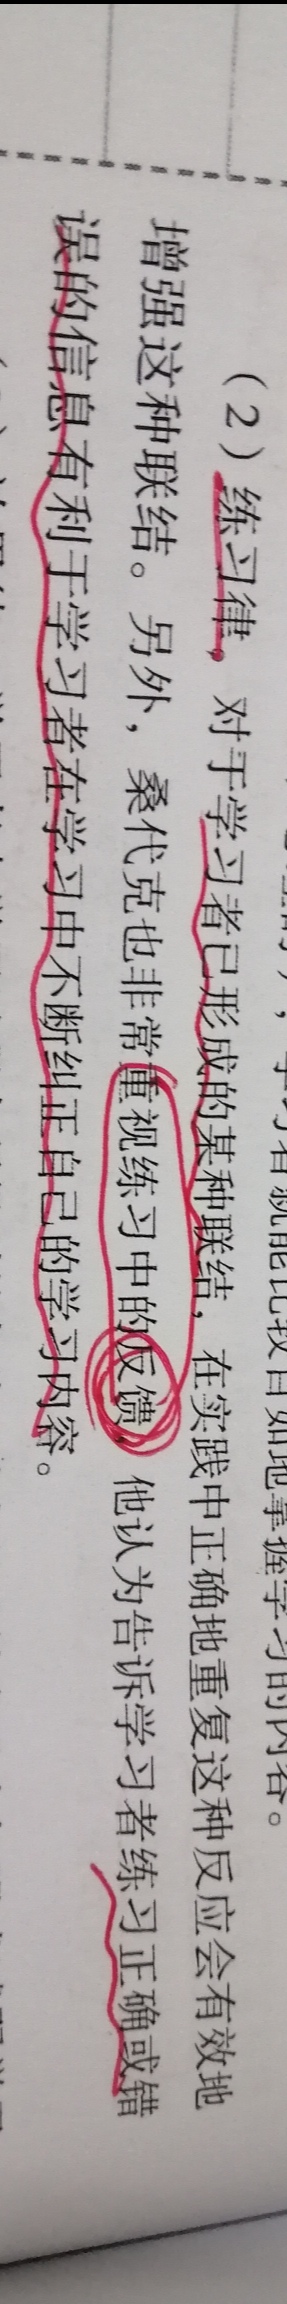 学习者就能比较自如地掌握学习的内容。
（2）练习律。对于学习者已形成的某种联结，在实践中正确地重复这种反应会有效地
增强这种联结。另外，桑代克也非常重视练习中的反馈，他认为告诉学习者练习正确或错
误的信息有利于学习者在学习中不断纠正自己的学习内容。